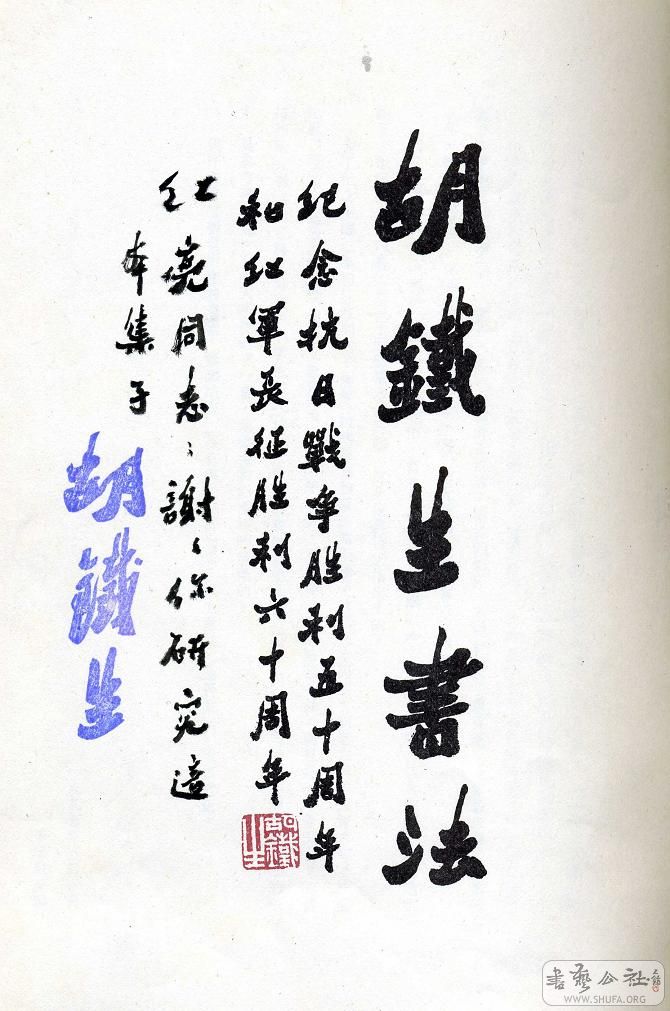 胡鐵生書法
纪念抗日戰争胜利五十周年
和红军長征胜利六十周年
红亮同志：謝〻你研究這
本集子
胡鐵生
胡鐵生
書藝公社
WWW.SHUFA.ORG